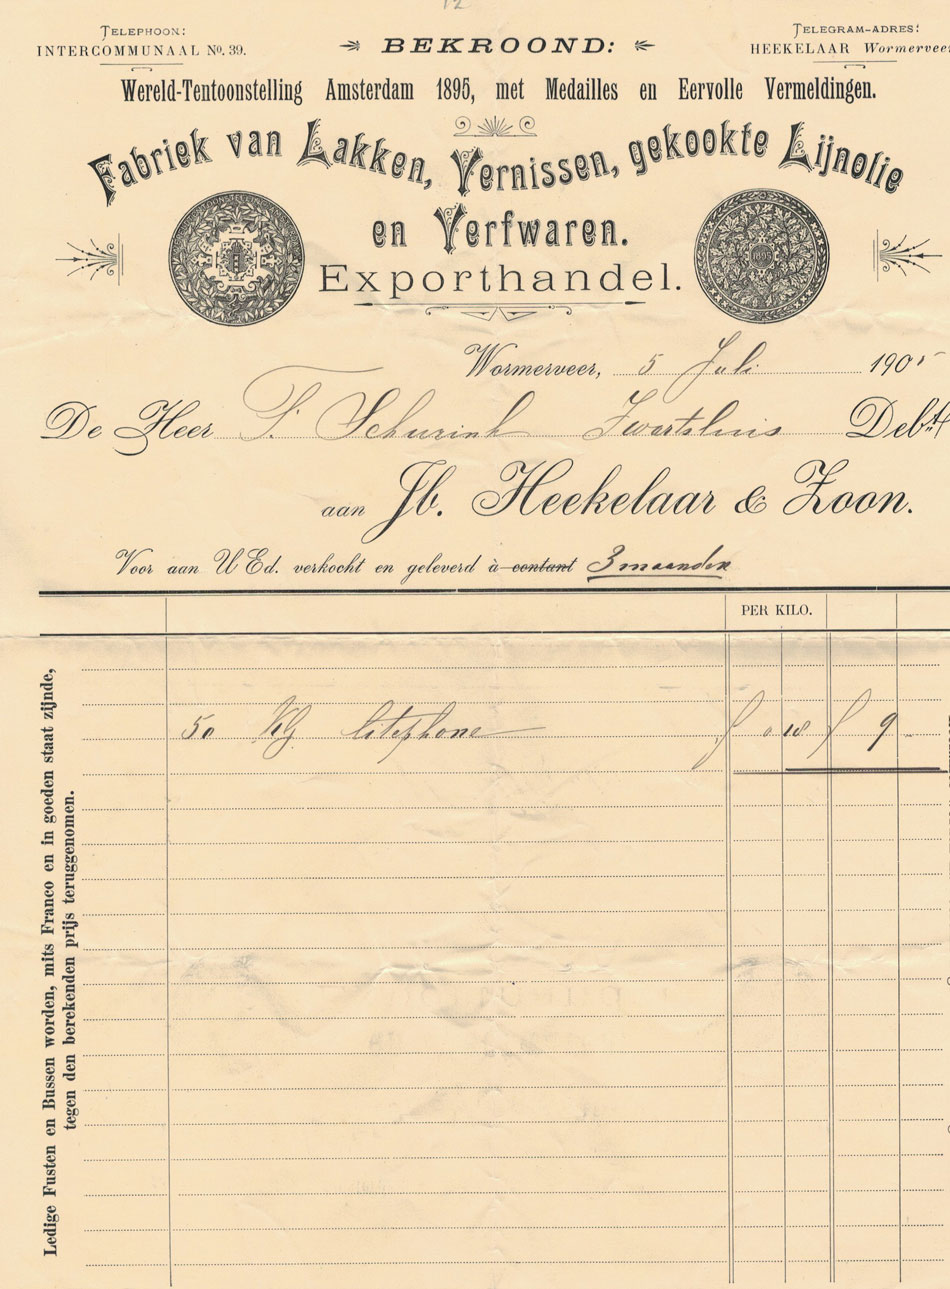 12
TELEPHOON:
INTERCOMMUNAAL No. 39.
BEKROOND:
TELEGRAM-ADRES:
HEEKELAAR Wormerveer
Wereld-Tentoonstelling Amsterdam 1895, met Medailles en Eervolle Vermeldingen.
Fabriek van Lakken, Vernissen, gekookte Lijnolie
en Verfwaren.
Exporthandel.
1895
Wormerveer, 5 Juli 1905
De Heer T. Schurink Zwartsluis Debt.
aan Jb. Heekelaar & Zoon.
Voor aan U Ed. verkocht en geleverd à contant 3 maanden
PER KILO.
50 KG litophone f 0 18 f 9 -
Ledige Fusten en Bussen worden, mits Franco en in goeden staat zijnde,
tegen den berekenden prijs teruggenomen.